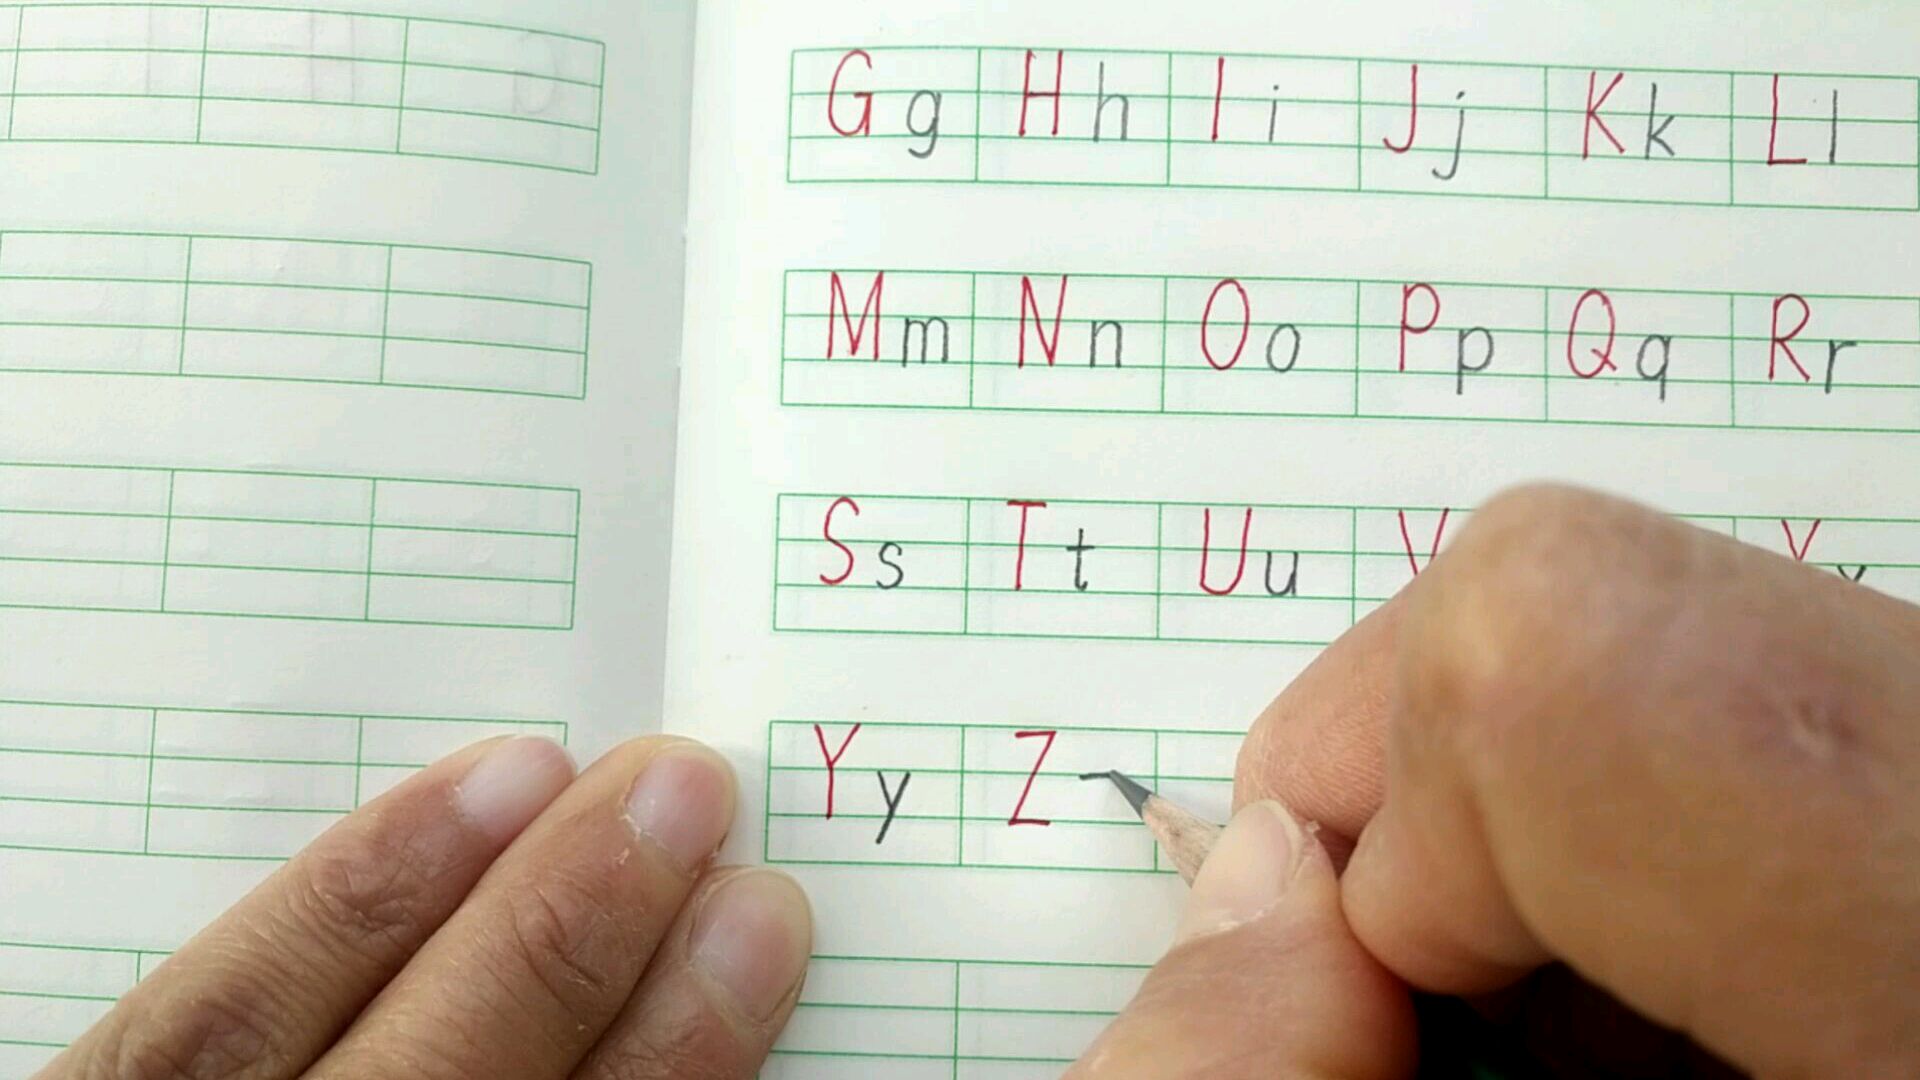 Gg Hh Ii Jj Kk Ll
Mm Nn Oo Pp Qq Rr
Ss Tt Uu V
Yy Z